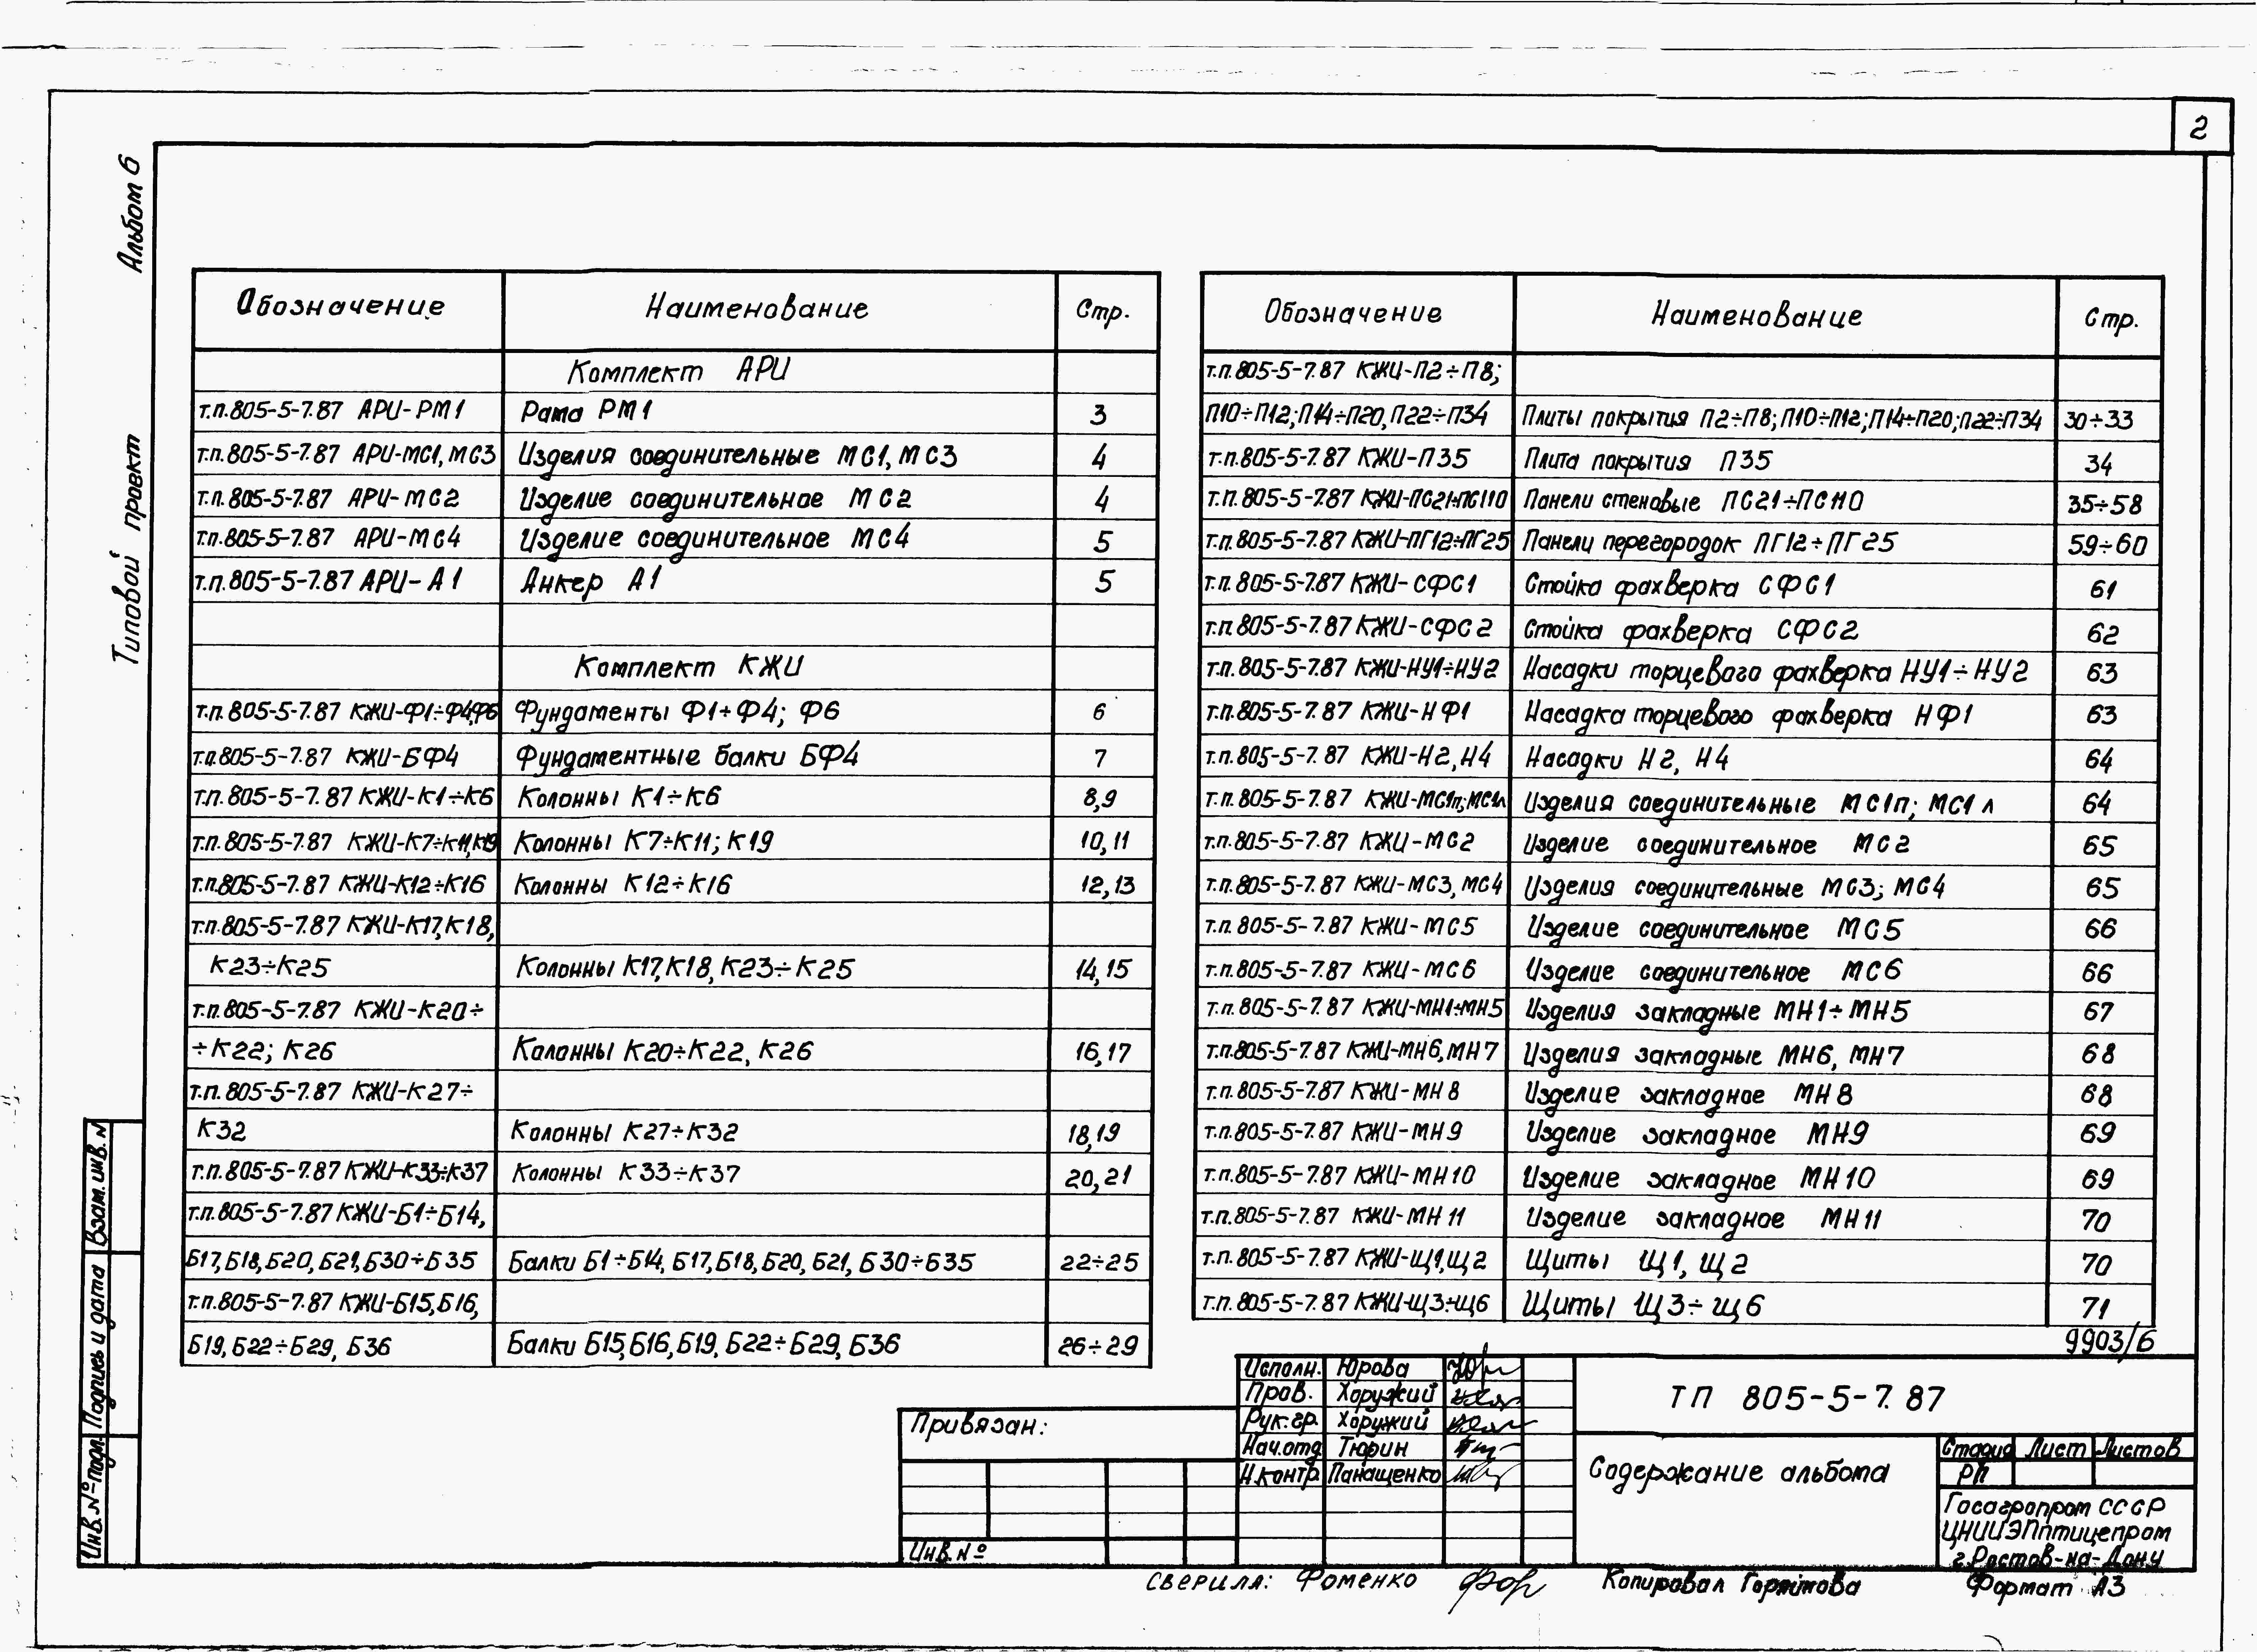 2
Альбом 6
Типовой проект
Обозначение Наименование Стр.
Комплект АРИ
т.п.805-5-7.87 АРИ-РМ1 Рама РМ1 3
т.п.805-5-7.87 АРИ-МС1, МС3 Изделия соединительные МС1, МС3 4
т.п.805-5-7.87 АРИ-МС2 Изделие соединительное МС2 4
т.п.805-5-7.87 АРИ-МС4 Изделие соединительное МС4 5
т.п.805-5-7.87 АРИ-А1 Анкер А1 5
Комплект КЖИ
т.п.805-5-7.87 КЖИ-Ф1÷Ф4,Ф6 Фундаменты Ф1÷Ф4; Ф6 6
т.п.805-5-7.87 КЖИ-БФ4 Фундаментные балки БФ4 7
т.п.805-5-7.87 КЖИ-К1÷К6 Колонны К1÷К6 8,9
т.п.805-5-7.87 КЖИ-К7÷К11,К19 Колонны К7÷К11; К19 10,11
т.п.805-5-7.87 КЖИ-К12÷К16 Колонны К12÷К16 12,13
т.п.805-5-7.87 КЖИ-К17,К18,
К23÷К25 Колонны К17,К18, К23÷К25 14,15
т.п.805-5-7.87 КЖИ-К20÷
÷К22; К26 Колонны К20÷К22, К26 16,17
т.п.805-5-7.87 КЖИ-К27÷
К32 Колонны К27÷К32 18,19
т.п.805-5-7.87 КЖИ-К33÷К37 Колонны К33÷К37 20,21
т.п.805-5-7.87 КЖИ-Б1÷Б14,
Б17,Б18,Б20,Б21,Б30÷Б35 Балки Б1÷Б14, Б17,Б18,Б20, Б21, Б30÷Б35 22÷25
т.п.805-5-7.87 КЖИ-Б15,Б16,
Б19,Б22÷Б29, Б36 Балки Б15,Б16,Б19, Б22÷Б29, Б36 26÷29
Обозначение Наименование Стр.
т.п.805-5-7.87 КЖИ-П2÷П8;
П10÷П12;П14÷П20,П22÷П34 Плиты покрытия П2÷П8; П10÷П12; П14÷П20; П22÷П34 30÷33
т.п.805-5-7.87 КЖИ-П35 Плита покрытия П35 34
т.п.805-5-7.87 КЖИ-ПС21÷ПС110 Панели стеновые ПС21÷ПС110 35÷58
т.п.805-5-7.87 КЖИ-ПГ12÷ПГ25 Панели перегородок ПГ12÷ПГ25 59÷60
т.п.805-5-7.87 КЖИ-СФС1 Стойка фахверка СФС1 61
т.п.805-5-7.87 КЖИ-СФС2 Стойка фахверка СФС2 62
т.п.805-5-7.87 КЖИ-НУ1÷НУ2 Насадки торцевого фахверка НУ1÷НУ2 63
т.п.805-5-7.87 КЖИ-НФ1 Насадка торцевого фахверка НФ1 63
т.п.805-5-7.87 КЖИ-Н2, Н4 Насадки Н2, Н4 64
т.п.805-5-7.87 КЖИ-МС1п; МС1л Изделия соединительные МС1п; МС1л 64
т.п.805-5-7.87 КЖИ-МС2 Изделие соединительное МС2 65
т.п.805-5-7.87 КЖИ-МС3, МС4 Изделия соединительные МС3; МС4 65
т.п.805-5-7.87 КЖИ-МС5 Изделие соединительное МС5 66
т.п.805-5-7.87 КЖИ-МС6 Изделие соединительное МС6 66
т.п.805-5-7.87 КЖИ-МН1÷МН5 Изделия закладные МН1÷МН5 67
т.п.805-5-7.87 КЖИ-МН6, МН7 Изделия закладные МН6, МН7 68
т.п.805-5-7.87 КЖИ-МН8 Изделие закладное МН8 68
т.п.805-5-7.87 КЖИ-МН9 Изделие закладное МН9 69
т.п.805-5-7.87 КЖИ-МН10 Изделие закладное МН10 69
т.п.805-5-7.87 КЖИ-МН11 Изделие закладное МН11 70
т.п.805-5-7.87 КЖИ-Щ1,Щ2 Щиты Щ1, Щ2 70
т.п.805-5-7.87 КЖИ-Щ3÷Щ6 Щиты Щ3÷Щ6 71
9903/6
Взам.инв.N
Подпись и дата
Инв.№подл.
Привязан:
Инв.№
Исполн. Юрова
Пров. Хоружий
Рук.гр. Хоружий
Нач.отд Тюрин
Н.контр. Панащенко
ТП 805-5-7.87
Содержание альбома
Стадия Лист Листов
РП
Госагропром СССР
ЦНИИЭПптицепром
г.Ростов-на-Дону
Сверила: Фоменко
Копировал
Формат А3